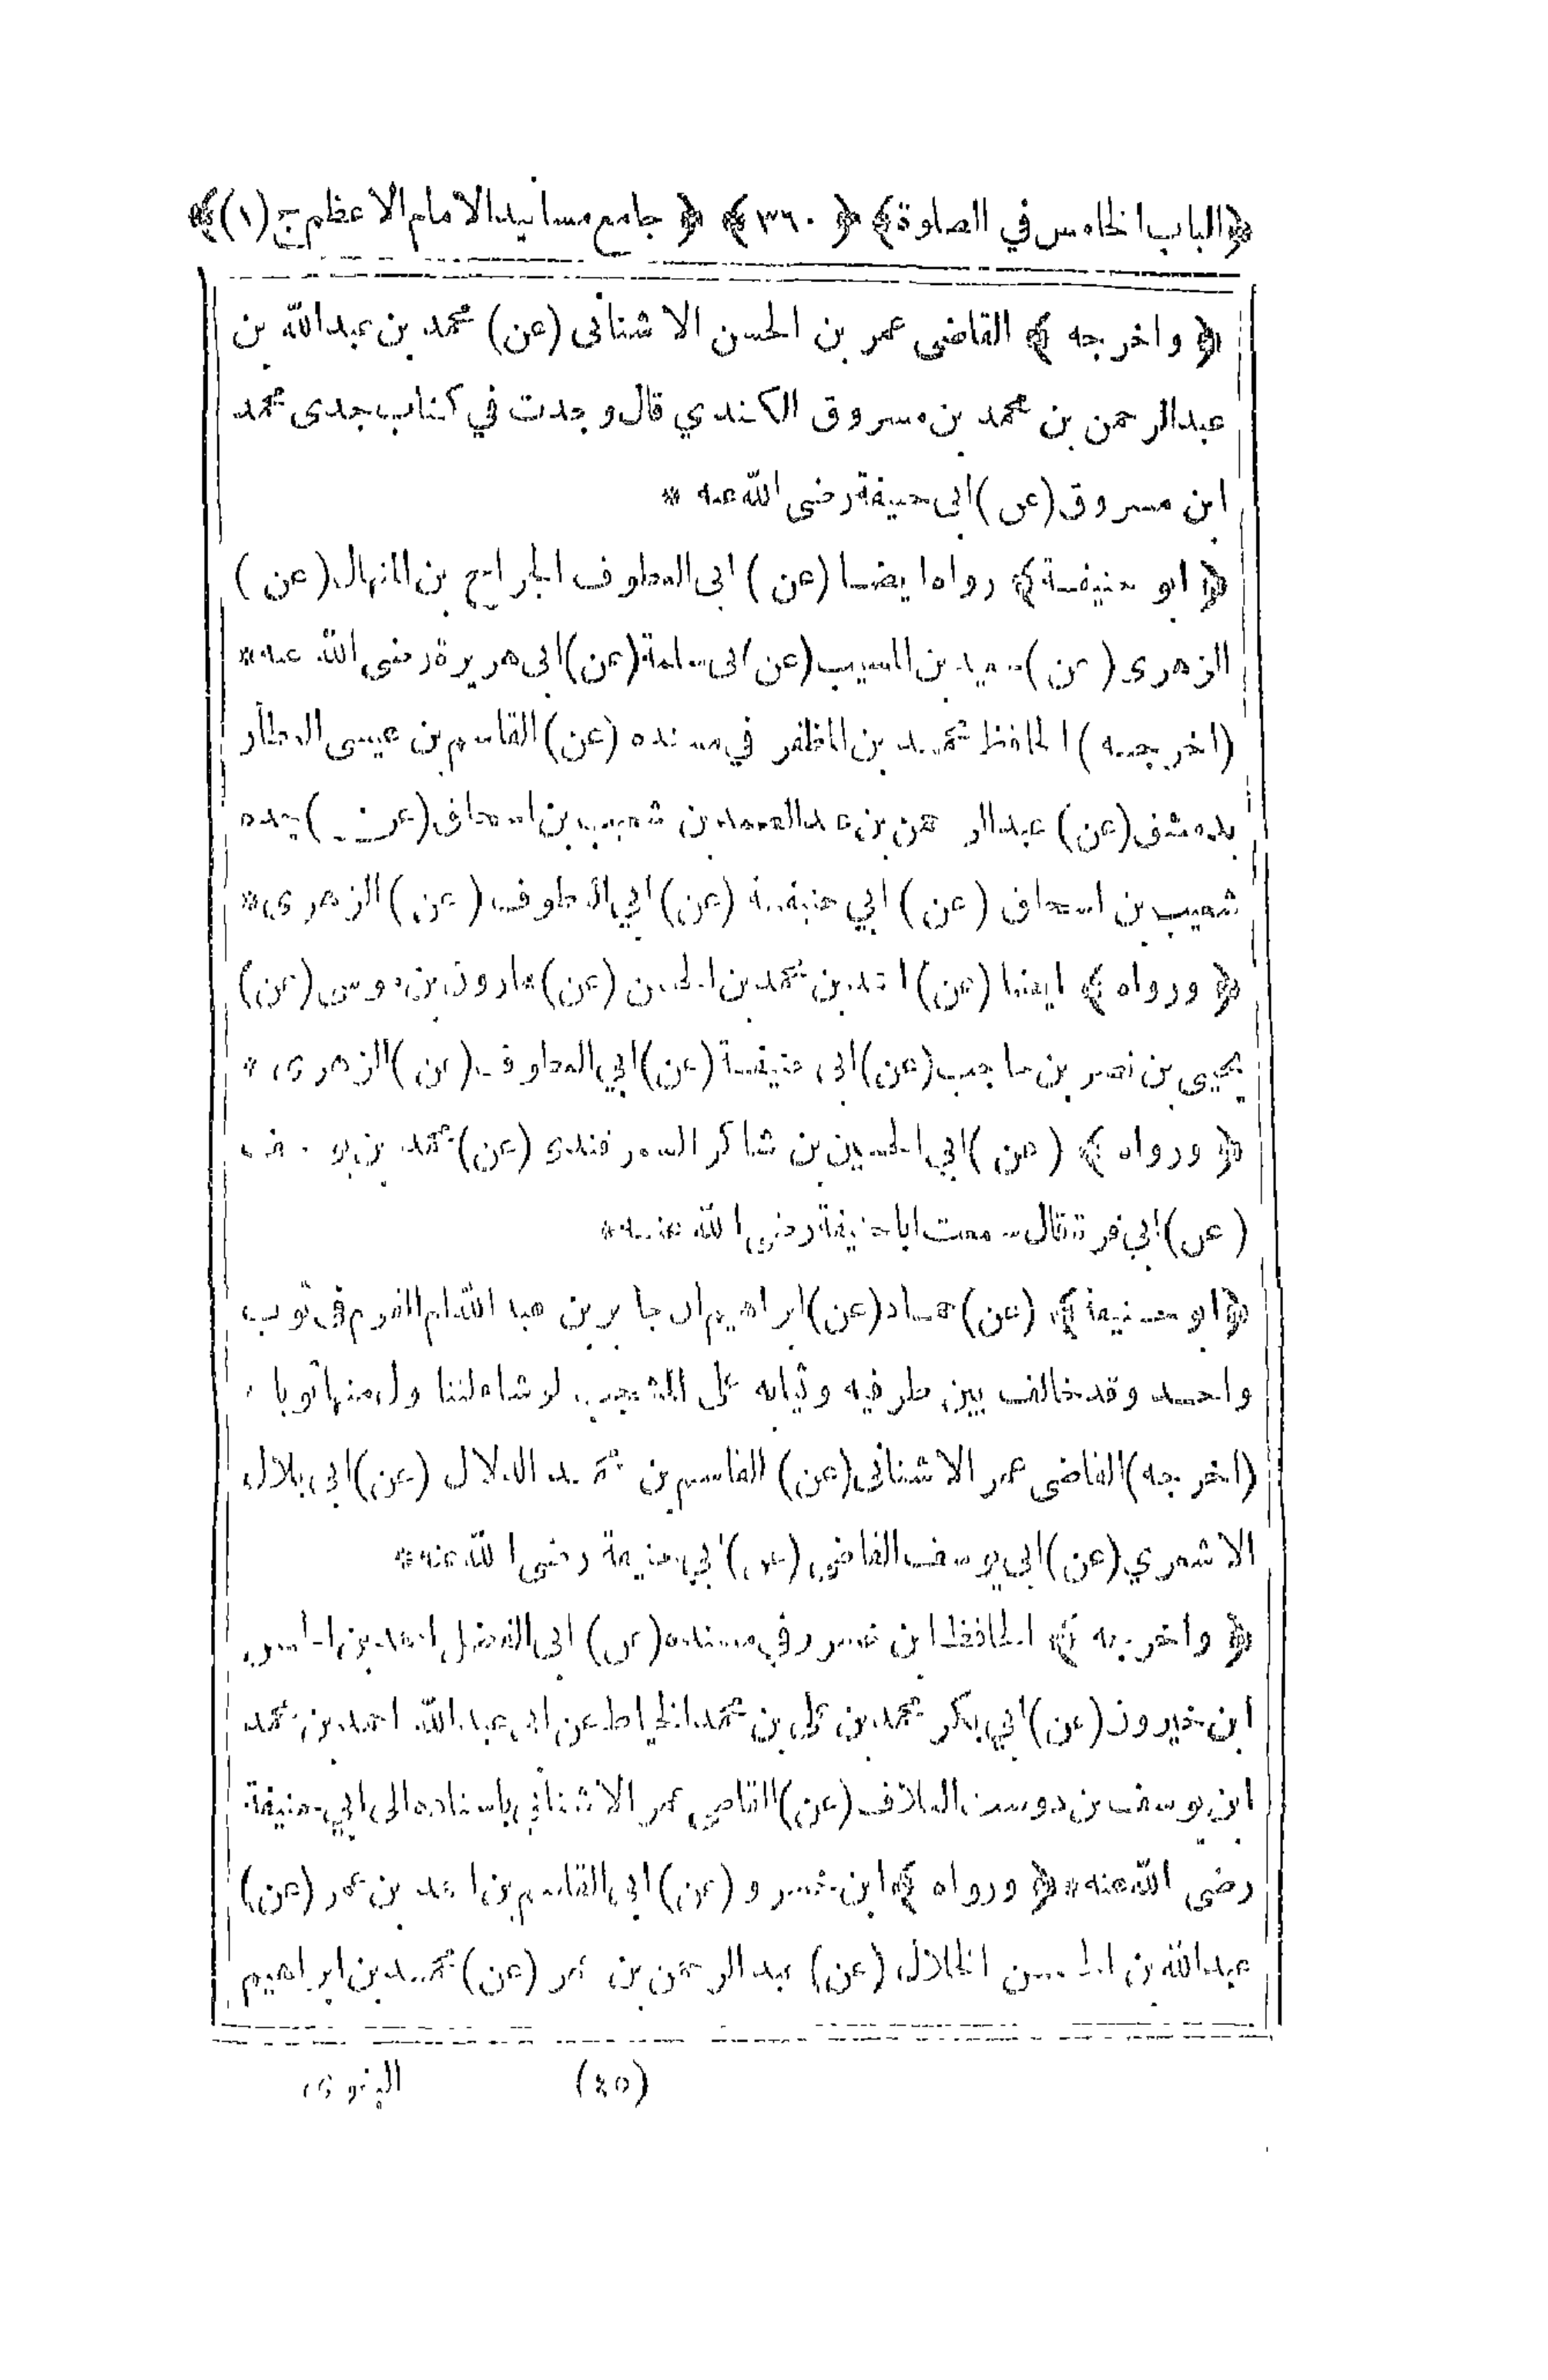 ﴿الباب الخامس في الصلوة﴾ ﴿٣٦٠﴾ ﴿جامع مسانيد الامام الاعظم ج(١)﴾
﴿ واخرجه ﴾ القاضى عمر بن الحسن الاشنانى (عن) محمد بن عبدالله بن
عبدالرحمن بن محمد بن مسروق الكندي قال وجدت في كتاب جدى محمد
ابن مسروق (عن) ابى حنيفة رضى الله عنه *
﴿ ابو حنيفة﴾ رواه ايضا (عن) ابى العطوف الجراح بن المنهال (عن)
الزهرى (عن) سعيد بن المسيب (عن) ابى سلمة (عن) ابى هريرة رضى الله عنه*
(اخرجه) الحافظ محمد بن المظفر في مسنده (عن) القاسم بن عيسى العطار
بدمشق (عن) عبدالرحمن بن عبدالصمد بن شعيب بن اسحاق (عن) جده
شعيب بن اسحاق (عن) ابي حنيفة (عن) ابي العطوف (عن) الزهرى*
﴿ ورواه ﴾ ايضا (عن) احمد بن محمد بن الحسن (عن) هارون بن موسى (عن)
يحيى بن نصر بن حاجب (عن) ابى حنيفة (عن) ابي العطوف (عن) الزهرى *
﴿ ورواه ﴾ (عن) ابي الحسين بن شاكر السمرقندى (عن) محمد بن يوسف
(عن) ابي قرة قال سمعت اباحنيفة رضى الله عنه*
﴿ابو حنيفة﴾ (عن) حماد (عن) ابراهيم ان جابر بن عبد الله ام القوم في ثوب
واحد وقد خالف بين طرفيه وثيابه على المشجب لو شاء لتناول منها ثوبا *
(اخرجه) القاضى عمر الاشنانى (عن) القاسم بن محمد الدلال (عن) ابى بلال
الاشعري (عن) ابى يوسف القاضي (عن) ابي حنيفة رضى الله عنه*
﴿ واخرجه ﴾ الحافظ ابن خسرو في مسنده (عن) ابى الفضل احمد بن الحسن
ابن خيرون (عن) ابي بكر محمد بن على بن محمد الخياط عن ابى عبدالله احمد بن محمد
ابن يوسف بن دوست العلاف (عن) القاضى عمر الاشنانى باسناده الى ابي حنيفة
رضى الله عنه *﴿ ورواه ﴾ ابن خسرو (عن) ابى القاسم بن احمد بن عمر (عن)
عبدالله بن الحسن الخلال (عن) عبد الرحمن بن عمر (عن) محمد بن ابراهيم
(٤٥)
البغوى